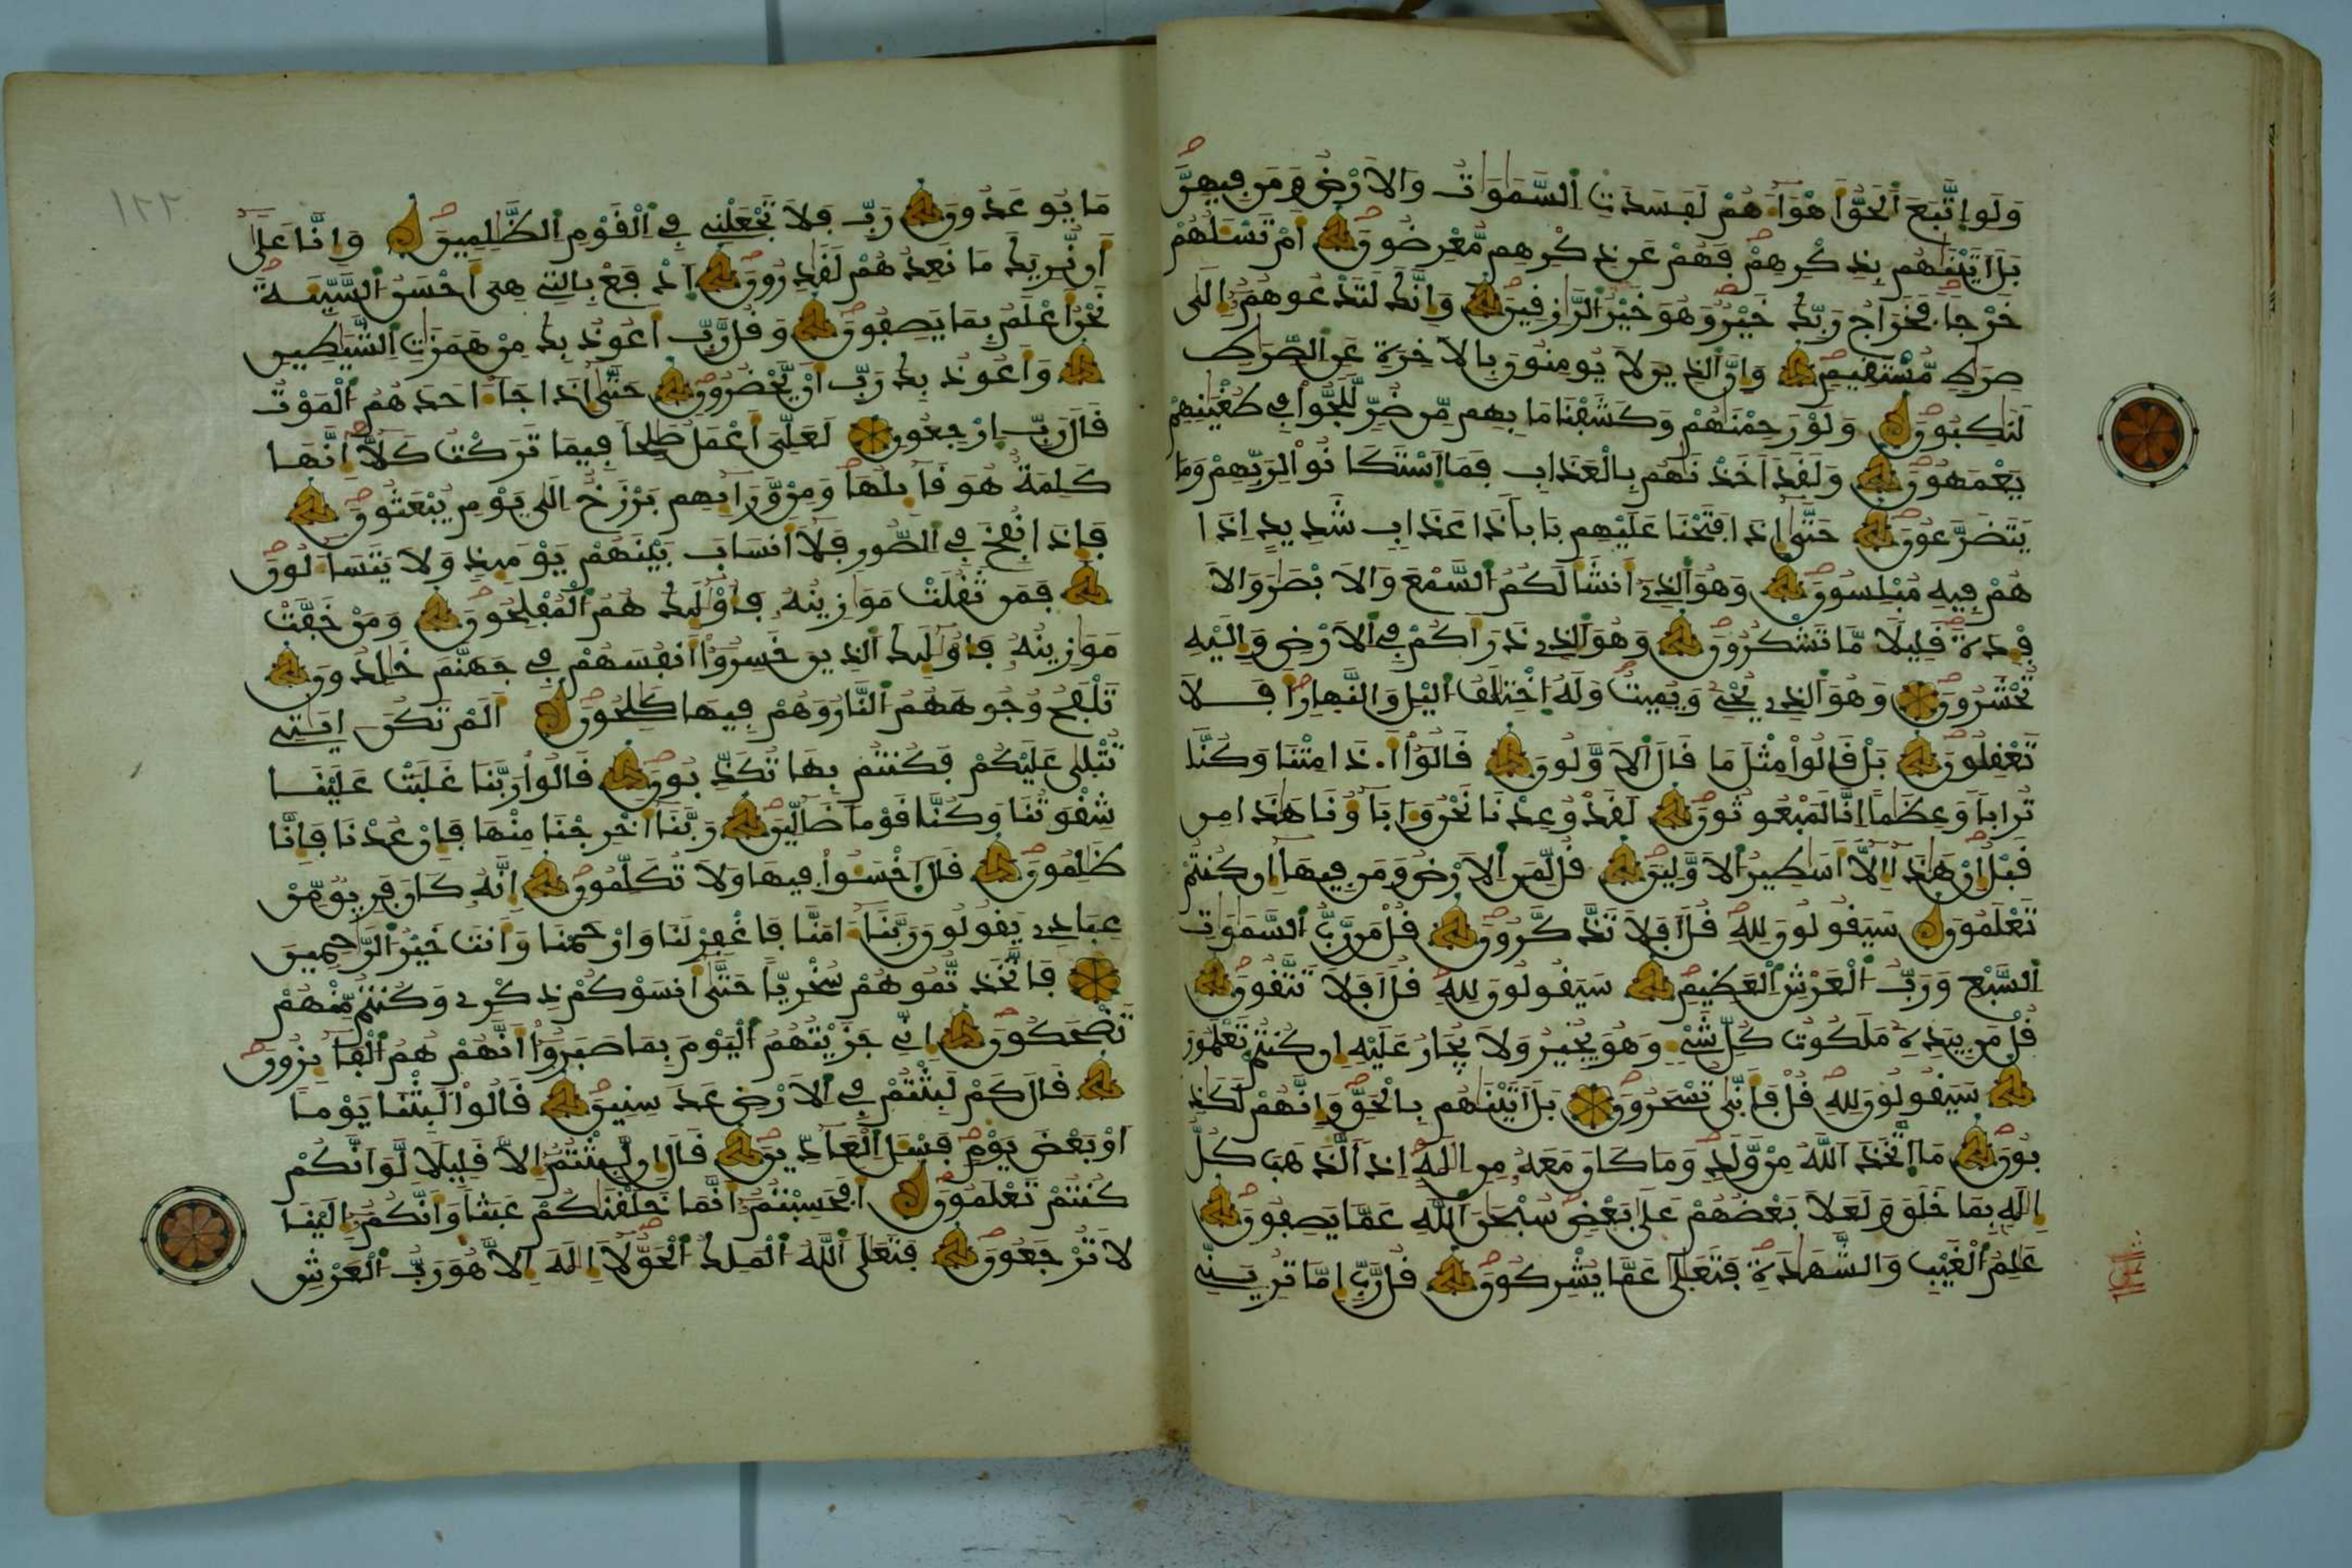 ولو اتبع الحق أهواءهم لفسدت السموات والارض ومن فيهن
بل اتينهم بذكرهم فهم عن ذكرهم معرضون ام تسلهم
خرجا فخراج ربك خير وهو خير الرازقين وانك لتدعوهم الى
صرط مستقيم وان الذين لا يومنون بالاخرة عن الصرط
لنكبون ولو رحمنهم وكشفنا ما بهم من ضر للجوا في طغينهم
يعمهون ولقد اخذنهم بالعذاب فما استكانوا لربهم وما
يتضرعون حتى اذا فتحنا عليهم بابا ذا عذاب شديد اذا
هم فيه مبلسون وهو الذي انشا لكم السمع والابصر والا
فدة قليلا ما تشكرون وهو الذي ذراكم في الارض واليه
تحشرون وهو الذي يحي ويميت وله اختلف اليل والنهار افلا
تعقلون بل قالوا مثل ما قال الاولون قالوا اذا متنا وكنا
ترابا وعظما انا لمبعوثون لقد وعدنا نحن وءاباونا هذا من
قبل ان هذا الا اسطير الاولين قل لمن الارض ومن فيها ان كنتم
تعلمون سيقولون لله قل افلا تذكرون قل من رب السموت
السبع ورب العرش العظيم سيقولون لله قل افلا تتقون
قل من بيده ملكوت كل شيء وهو يجير ولا يجار عليه ان كنتم تعلمون
سيقولون لله قل فانى تسحرون بل اتينهم بالحق وانهم لكذ
بون ما اتخذ الله من ولد وما كان معه من اله اذا لذهب كل
اله بما خلق ولعلا بعضهم على بعض سبحن الله عما يصفون
علم الغيب والشهدة فتعلى عما يشركون قل رب اما تريني
ما يوعدون رب فلا تجعلني في القوم الظلمين وانا على
ان نريك ما نعدهم لقدرون ادفع بالتي هي احسن السيئة
نحن اعلم بما يصفون وقل رب اعوذ بك من همزت الشيطين
واعوذ بك رب ان يحضرون حتى اذا جاء احدهم الموت
قال رب ارجعون لعلي اعمل صلحا فيما تركت كلا انها
كلمة هو قايلها ومن ورايهم برزخ الى يوم يبعثون
فاذا نفخ في الصور فلا انساب بينهم يوميذ ولا يتساءلون
فمن ثقلت موازينه فاوليك هم المفلحون ومن خفت
موازينه فاوليك الذين خسروا انفسهم في جهنم خلدون
تلفح وجوههم النار وهم فيها كلحون الم تكن ايتي
تتلى عليكم فكنتم بها تكذبون قالوا ربنا غلبت علينا
شقوتنا وكنا قوما ضالين ربنا اخرجنا منها فان عدنا فانا
ظلمون قال اخسئوا فيها ولا تكلمون انه كان فريق من
عبادي يقولون ربنا ءامنا فاغفر لنا وارحمنا وانت خير الرحمين
فاتخذتموهم سخريا حتى انسوكم ذكري وكنتم منهم
تضحكون اني جزيتهم اليوم بما صبروا انهم هم الفايزون
قال كم لبثتم في الارض عدد سنين قالوا لبثنا يوما
او بعض يوم فسل العادين قال ان لبثتم الا قليلا لو انكم
كنتم تعلمون افحسبتم انما خلقنكم عبثا وانكم الينا
لا ترجعون فتعلى الله الملك الحق لا اله الا هو رب العرش